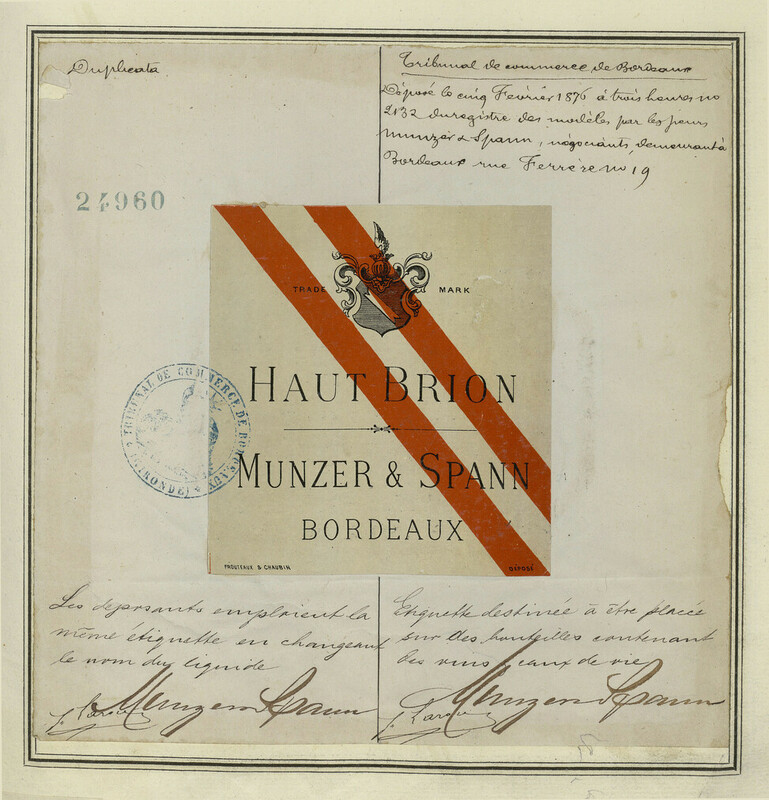 Duplicata
Tribunal de commerce de Bordeaux
Déposé le cinq Fevrier 1876 à trois heures no
2132 du registre des modèles par les sieurs
Munzer & Spann, négociants demeurant à
Bordeaux rue Ferrère no 19
24960
TRADE MARK
HAUT BRION
MUNZER & SPANN
BORDEAUX
PROUTEAUX & CHAUBIN
DÉPOSÉ
TRIBUNAL DE COMMERCE DE BORDEAUX
(GIRONDE)
Les deposants emploient la
même étiquette en changeant
le nom du liquide
Munzer & Spann
Etiquette destinée à être placée
sur des bouteilles contenant
des vins, eaux de vie
Munzer & Spann